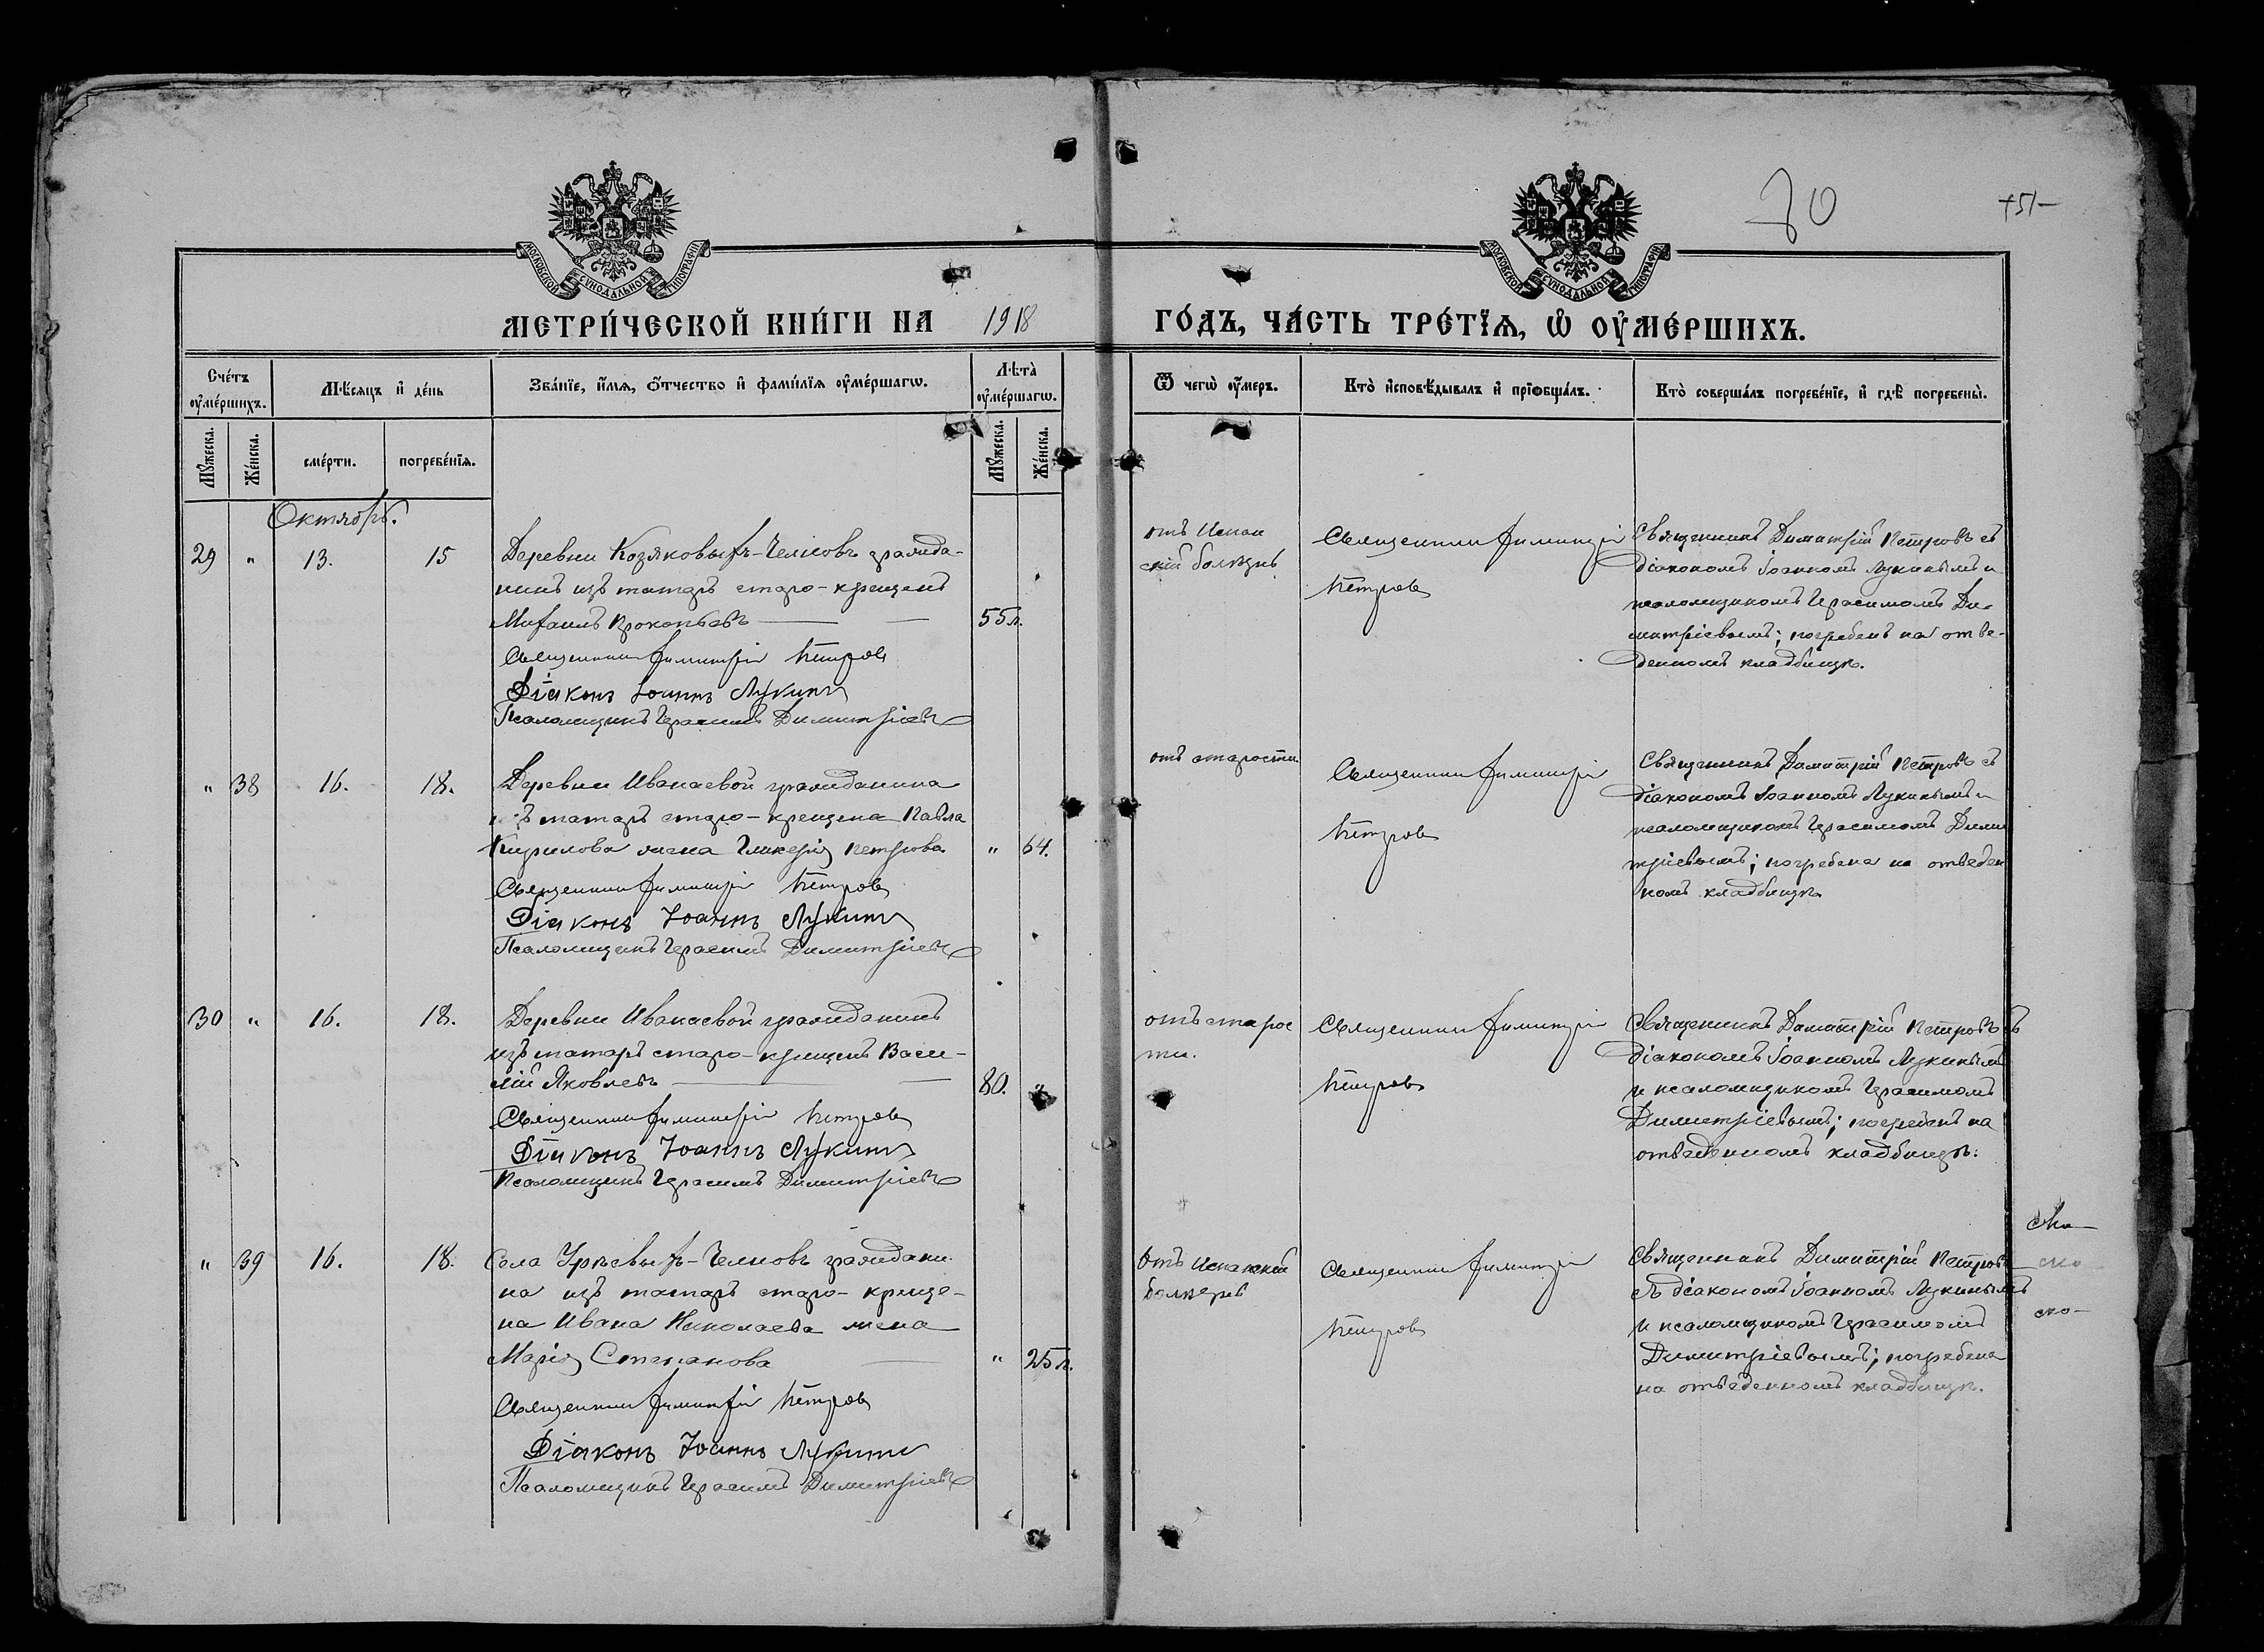 70
+51-
МОСКОВСКОЙ СѴНОДАЛЬНОЙ ТИПОГРАФІИ
МОСКОВСКОЙ СѴНОДАЛЬНОЙ ТИПОГРАФІИ
МЕТРИ́ЧЕСКОЙ КНИ́ГИ НА 1918 ГО́ДЪ, ЧА́СТЬ ТРЕ́ТЇѦ, Ѽ ОУ҆МЕ́РШИХЪ.
Сче́тъ оу҆ме́ршихъ.
Мѣ́сяцъ и҆ де́нь
Зва́нїе, и҆́мѧ, ѻ҆́тчество и҆ фами́лїѧ оу҆ме́ршагѡ.
Лѣ́та̀ оу҆ме́ршагѡ.
Ѿ чегѡ̀ оу҆́меръ.
Кто̀ и҆сповѣ́дывалъ и҆ прїѻбща́лъ.
Кто̀ соверша́лъ погребе́нїе, и҆ гдѣ̀ погребены̀.
Мꙋ́жеска.
Же́нска.
сме́рти.
погребе́нїѧ.
Мꙋ́жеска.
Же́нска.
Октябрь.
29 " 13. 15
Деревни Козяковыхъ-Челновъ гражда-
нинъ изъ татаръ старо-крещенъ
Михаилъ Прокопьевъ — — 55 л.
Священникъ Димитрій Петровъ
Діаконъ Іоаннъ Лукинъ
Псаломщикъ Герасимъ Димитріевъ
отъ Испан
ской болѣзнь
Священникъ Димитрій
Петровъ
Священникъ Димитрій Петровъ съ
діакономъ Іоанномъ Лукинымъ и
псаломщикомъ Герасимомъ Ди-
митріевымъ; погребенъ на отве-
денномъ кладбищѣ.
" 38 16. 18.
Деревни Иванаевой гражданина
изъ татаръ старо-крещена Павла
Кирилова жена Гликерія Петрова " 64.
Священникъ Димитрій Петровъ
Діаконъ Іоаннъ Лукинъ
Псаломщикъ Герасимъ Димитріевъ
отъ старости
Священникъ Димитрій
Петровъ
Священникъ Димитрій Петровъ съ
діакономъ Іоанномъ Лукинымъ и
псаломщикомъ Герасимомъ Дими
тріевымъ; погребена на отведен
номъ кладбищѣ.
30 " 16. 18.
Деревни Иванаевой гражданинъ
изъ татаръ старо-крещенъ Васи-
лій Яковлевъ — — 80. "
Священникъ Димитрій Петровъ
Діаконъ Іоаннъ Лукинъ
Псаломщикъ Герасимъ Димитріевъ
отъ старос
ти.
Священникъ Димитрій
Петровъ
Священникъ Димитрій Петровъ съ
діакономъ Іоанномъ Лукинымъ
и псаломщикомъ Герасимомъ
Димитріевымъ; погребенъ на
отведенномъ кладбищѣ.
" 39 16. 18.
Села Урѣевыхъ-Челновъ граждани
на изъ татаръ старо-креще-
на Ивана Николаева жена
Марія Степанова — " 25 л.
Священникъ Димитрій Петровъ
Діаконъ Іоаннъ Лукинъ
Псаломщикъ Герасимъ Димитріевъ
отъ Испанской
болѣзнь
Священникъ Димитрій
Петровъ
Священникъ Димитрій Петровъ
съ діакономъ Іоанномъ Лукинымъ
и псаломщикомъ Герасимомъ
Димитріевымъ; погребена
на отведенномъ кладбищѣ.